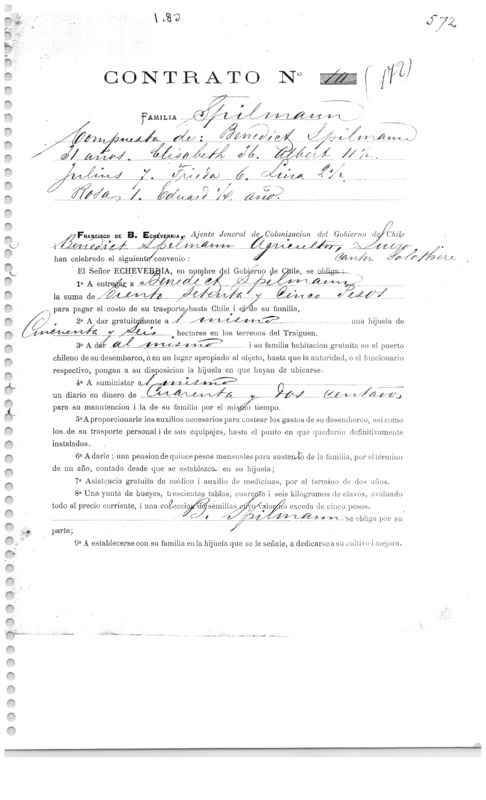 1.80
572
CONTRATO Nº 10 (172)
FAMILIA Spilmann
Compuesta de: Benedict Spilmann
31 años. Elisabeth 36. Albert 11½
Julius 7. Frieda 6. Lina 2½
Rosa 1. Eduard ¼ año.
FRANCISCO DE B. ECHEVERRIA, Ajente Jeneral de Colonizacion del Gobierno de Chile
Benedict Spilmann Agricultor, Suizo
Canton Solothurn
han celebrado el siguiente convenio:
El Señor ECHEVERRIA, en nombre del Gobierno de Chile, se obliga:
1º A entregar a Benedict Spilmann
la suma de Ciento Setenta y Cinco Pesos
para pagar el costo de su trasporte hasta Chile i el de su familia,
2º A dar gratuitamente a l mismo una hijuela de
Cincuenta y Seis hectares en los terrenos del Traiguen.
3º A dar al mismo i su familia habitacion gratuita en el puerto
chileno de su desembarco, ó en un lugar apropiado al objeto, hasta que la autoridad, o el funcionario
respectivo, pongan a su disposicion la hijuela en que hayan de ubicarse.
4º A suministar al mismo
un diario en dinero de Cuarenta y dos centavos
para su manutencion i la de su familia por el mismo tiempo.
5º A proporcionarle los auxilios necesarios para costear los gastos de su desembarco, asi como
los de su trasporte personal i de sus equipajes, hasta el punto en que quedarán definitivamente
instalados.
6º A darle: una pension de quince pesos mensuales para sustento de la familia, por el término
de un año, contado desde que se establezca en su hijuela;
7º Asistencia gratuita de médico i auxilio de medicinas, por el termino de dos años.
8º Una yunta de bueyes, trescientas tablas, cuarenta i seis kilógramos de clavos, avaluado
todo al precio corriente, i una coleccion de semillas cuyo valor no exceda de cinco pesos.
B. Spilmann se obliga por su
parte;
9º A establecerse con su familia en la hijuela que se le señale, a dedicarse a su cultivo i mejora.